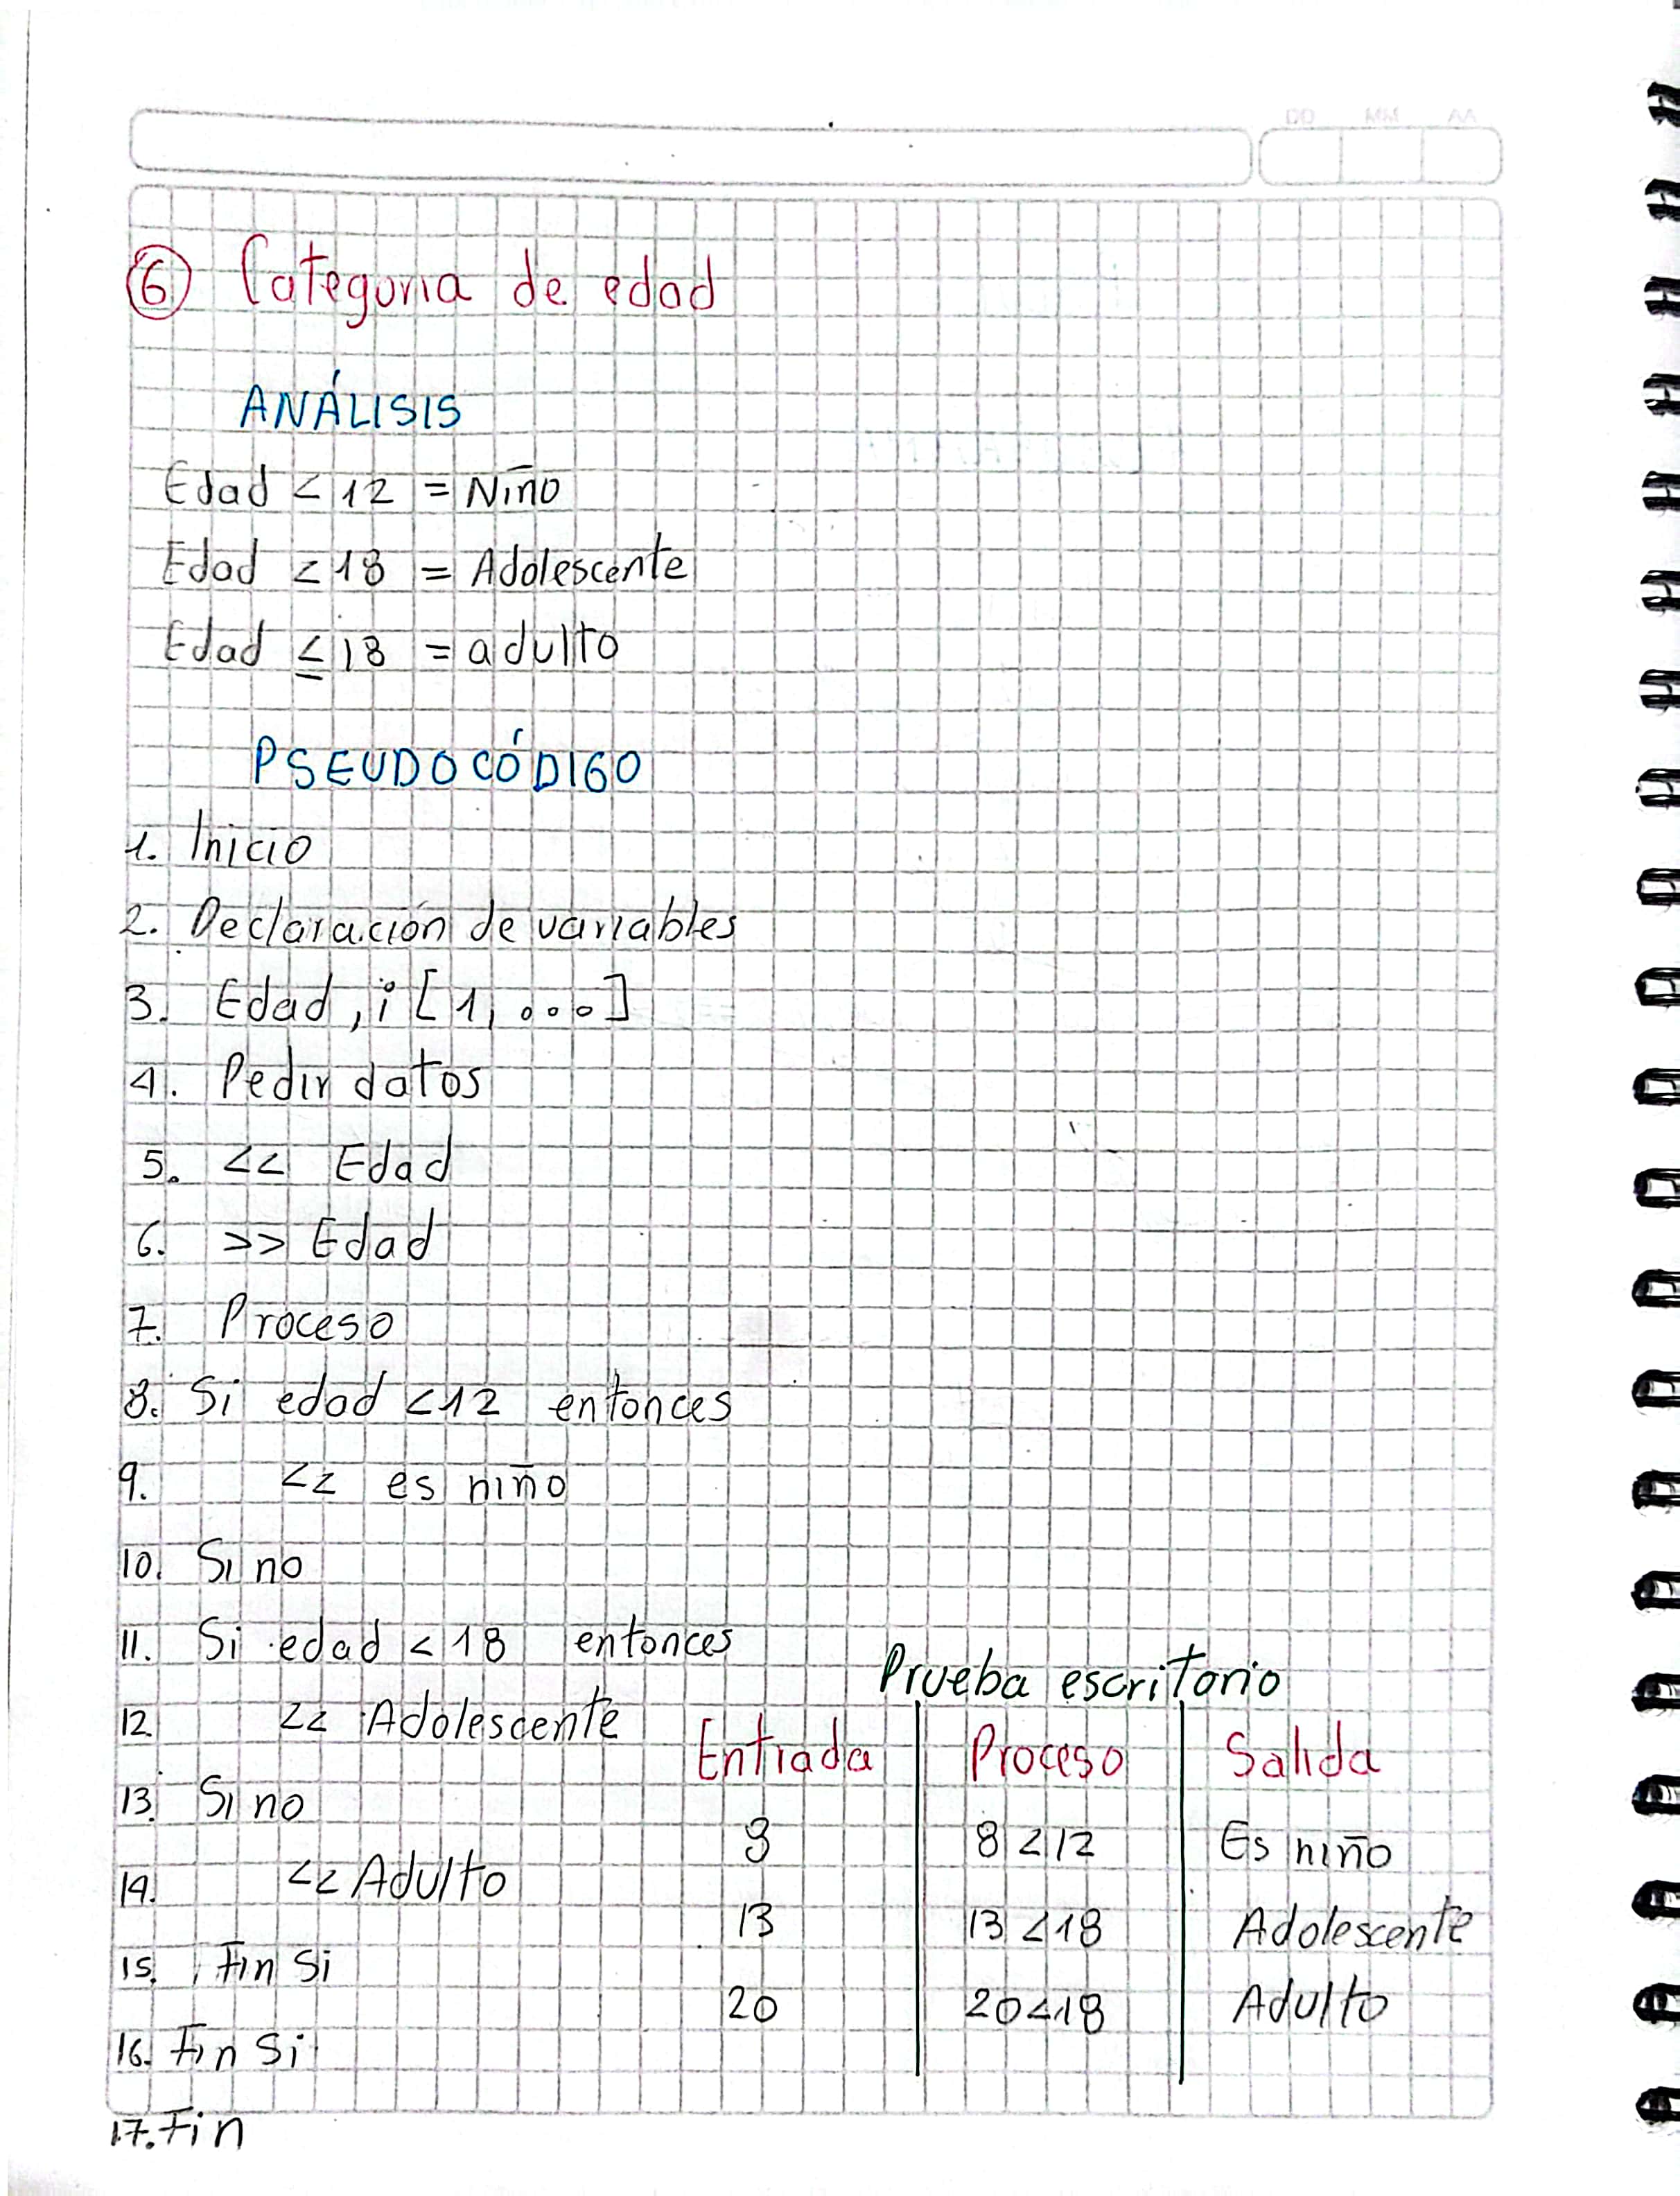 DD MM AA
6 Categoria de edad
ANÁLISIS
Edad < 12 = Niño
Edad < 18 = Adolescente
Edad ≤ 18 = adulto
PSEUDOCÓDIGO
1. Inicio
2. Declaración de variables
3. Edad, i [1, ...]
4. Pedir datos
5. << Edad
6. >> Edad
7. Proceso
8. Si edad < 12 entonces
9. << es niño
10. Si no
11. Si edad < 18 entonces
12 << Adolescente
13. Si no
14. << Adulto
15. Fin Si
16. Fin Si
17. Fin
Prueba escritorio
Entrada Proceso Salida
8 8 < 12 Es niño
13 13 < 18 Adolescente
20 20 < 18 Adulto